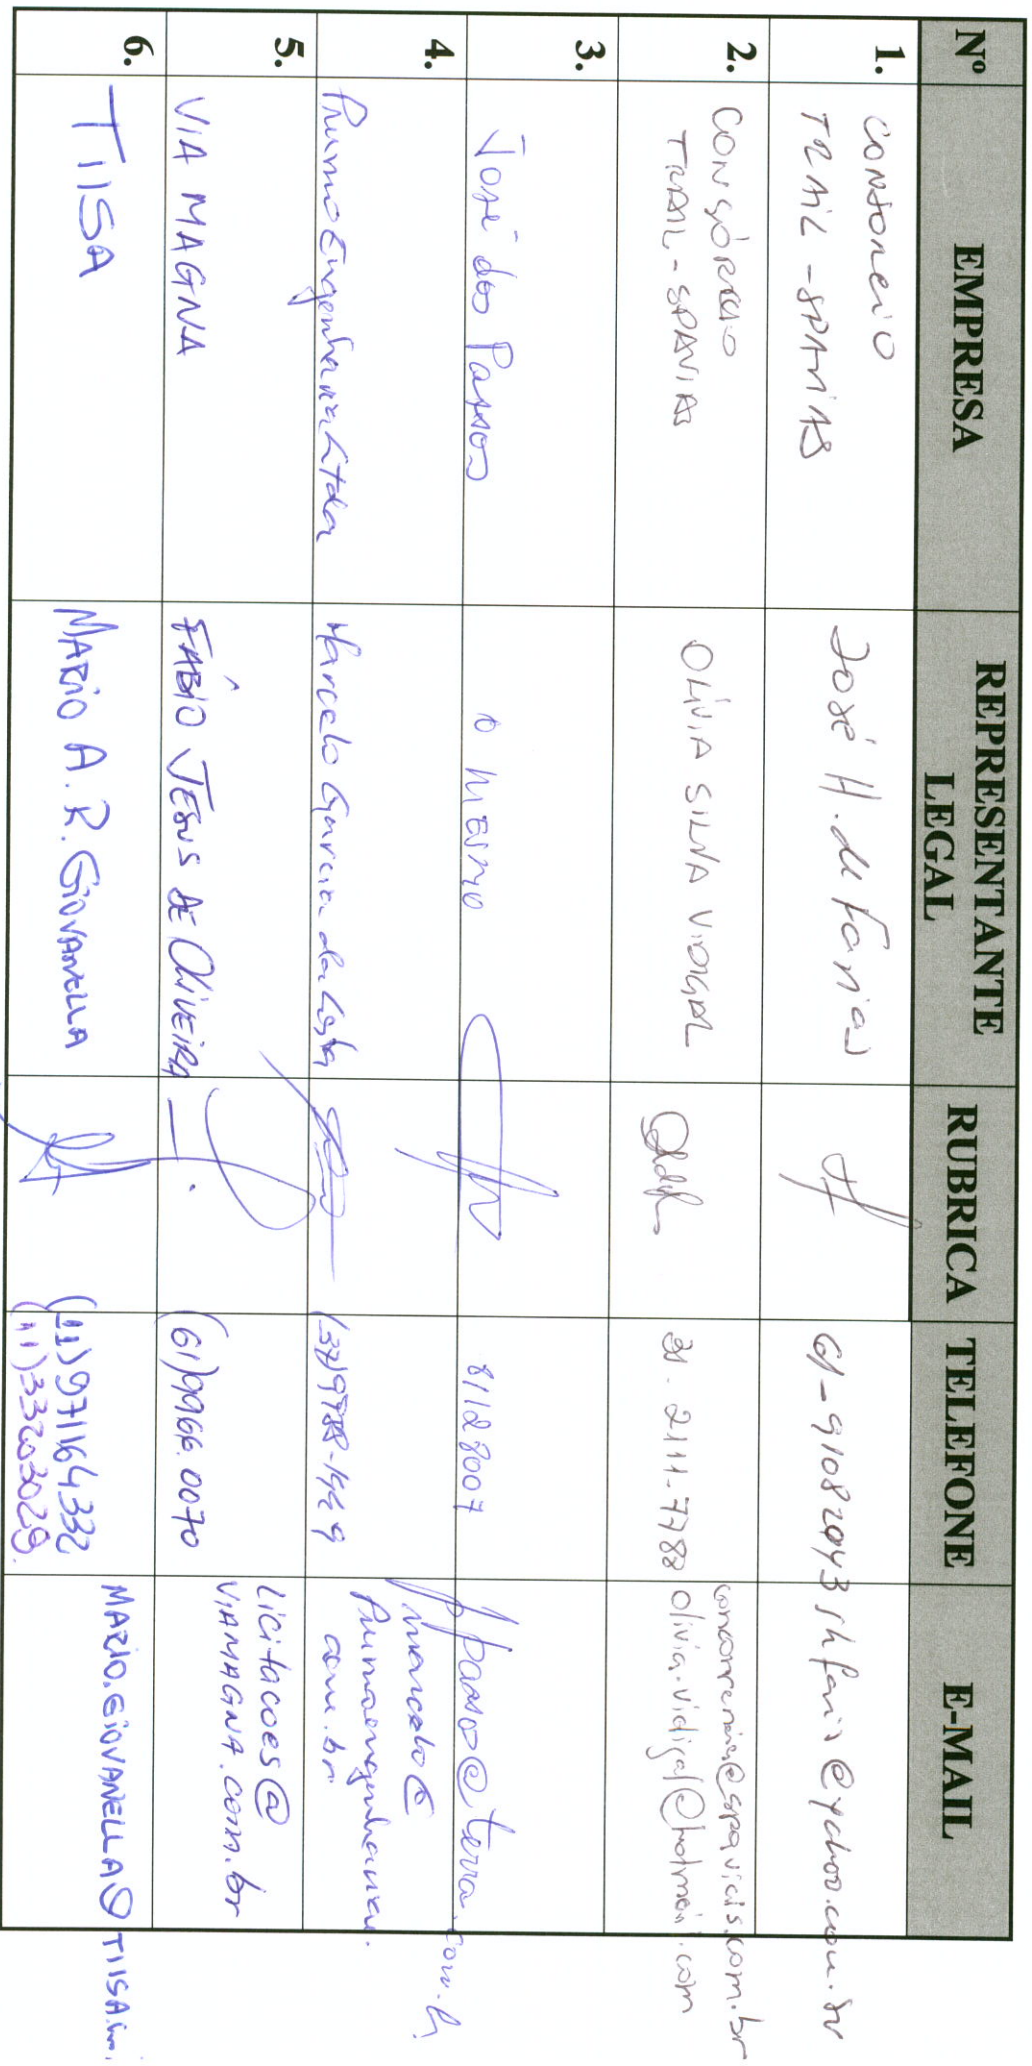 Nº EMPRESA REPRESENTANTE LEGAL RUBRICA TELEFONE E-MAIL
1. CONSÓRCIO
TRAIL - SPAVIAS José H. de Farias 61-91082043 @yahoo.com.br
2. CONSÓRCIO
TRAIL - SPAVIAS OLÍVIA SILVA VIDIGAL 31-2111-7788 concorrencia@spavias.com.br
olivia.vidigal@hotmail.com
3. José dos Passos o mesmo 81128007 @terra.com.br
4. Prumo Engenharia Ltda Marcelo Garcia da Costa marcelo@
prumoengenharia.
com.br
5. VIA MAGNA FÁBIO JESUS DE OLIVEIRA (61)9966.0070 licitacoes@
VIAMAGNA.com.br
6. TIISA MARIO A. R. GIOVANELLA (11)971164332
(11)33203029. MARIO.GIOVANELLA@TIISA